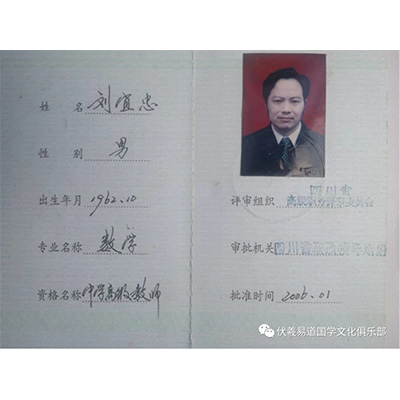 姓名 刘宜忠
性别 男
出生年月 1962.10
专业名称 数学
资格名称 中学高级教师
四川省
评审组织
审批机关
批准时间 2006.01
伏羲易道国学文化俱乐部